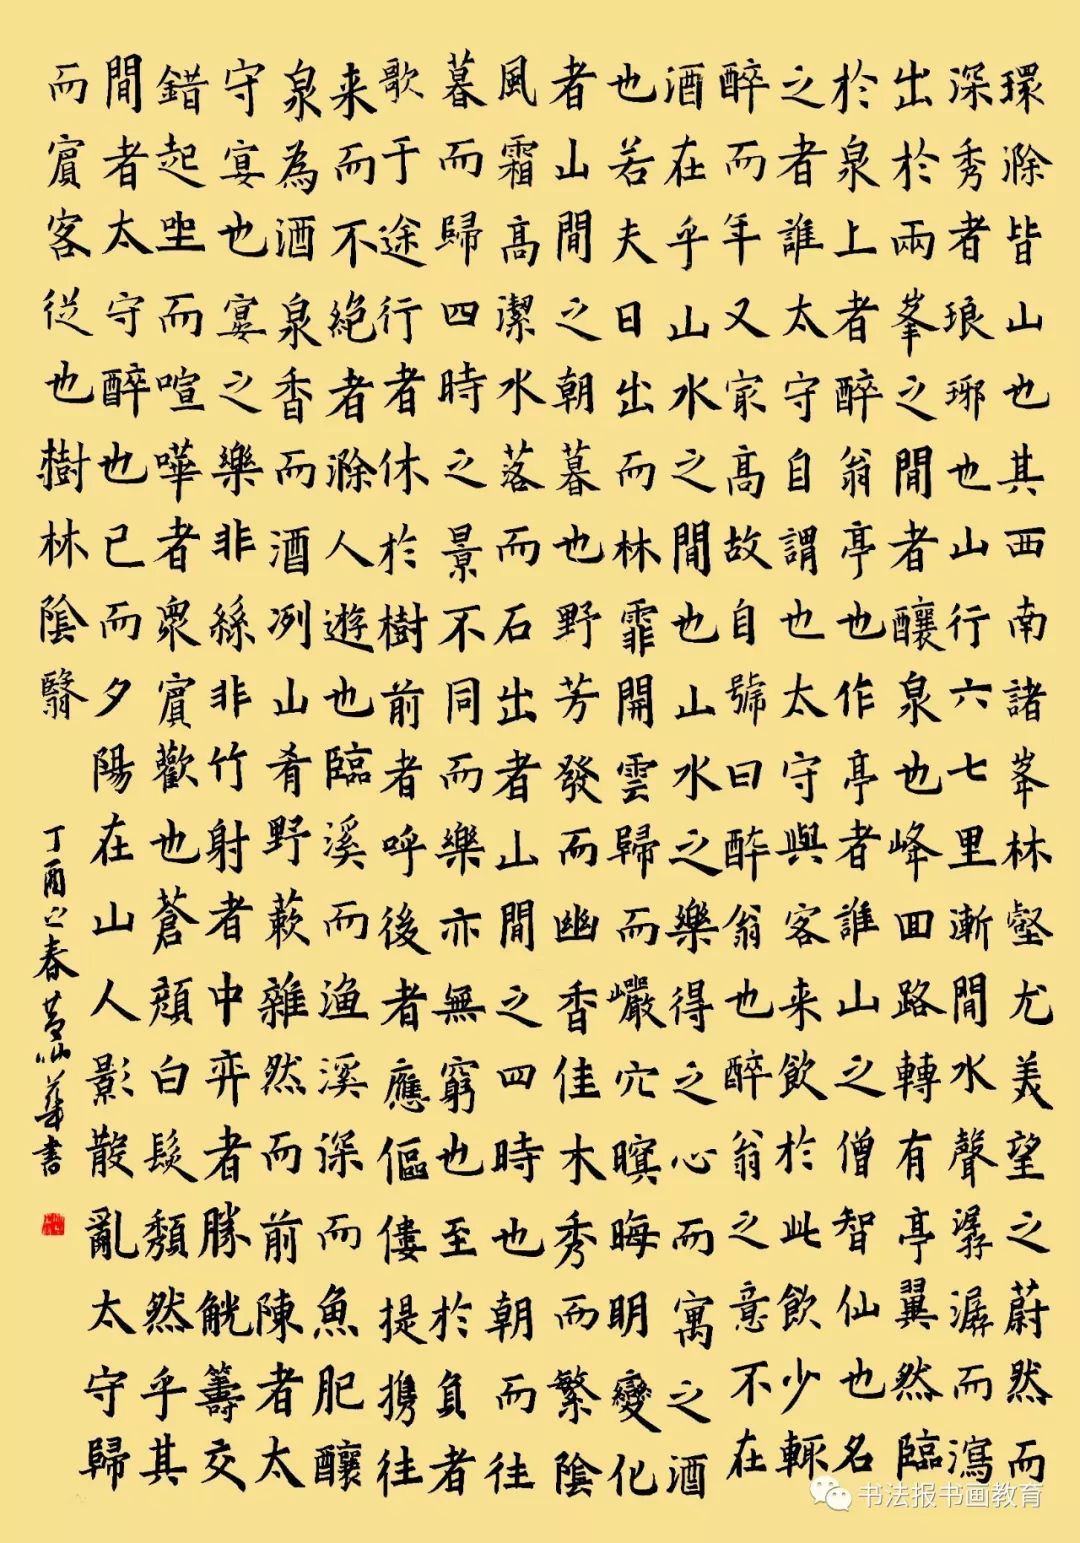 環滁皆山也其西南諸峯林壑尤美望之蔚然而
深秀者琅琊也山行六七里漸聞水聲潺潺而瀉
出於兩峯之間者釀泉也峰回路轉有亭翼然臨
於泉上者醉翁亭也作亭者誰山之僧智仙也名
之者誰太守自謂也太守與客来飲於此飲少輒
醉而年又冣高故自號曰醉翁也醉翁之意不在
酒在乎山水之間也山水之樂得之心而寓之酒
也若夫日出而林霏開雲歸而巖穴暝晦明變化
者山間之朝暮也野芳發而幽香佳木秀而繁陰
風霜高潔水落而石出者山間之四時也朝而往
暮而歸四時之景不同而樂亦無窮也至於負者
歌于途行者休於樹前者呼後者應傴僂提携往
来而不絕者滁人遊也臨溪而漁溪深而魚肥釀
泉為酒泉香而酒冽山肴野蔌雜然而前陳者太
守宴也宴之樂非絲非竹射者中弈者勝觥籌交
錯起坐而喧嘩者衆賓歡也蒼顏白髮頹然乎其
間者太守醉也已而夕陽在山人影散亂太守歸
而賓客從也樹林陰翳
丁酉之春黄仙華書
书法报书画教育